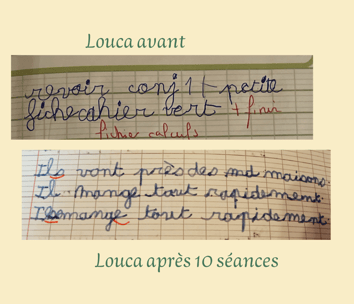 Louca avant
revoir conj 1 + petite
fiche cahier vert + finir
fichier calculs
Ils vont près des maisons.
Il mange tout rapidement.
mange tout rapidement.
Louca après 10 séances